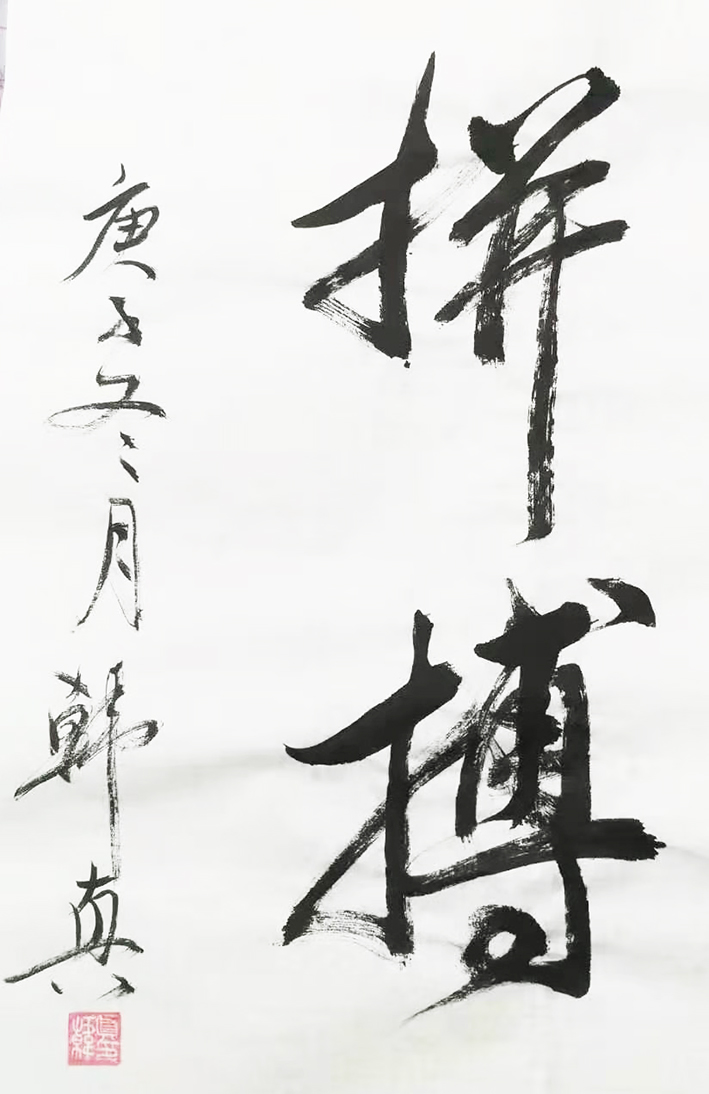 拼搏
庚子冬月韩真